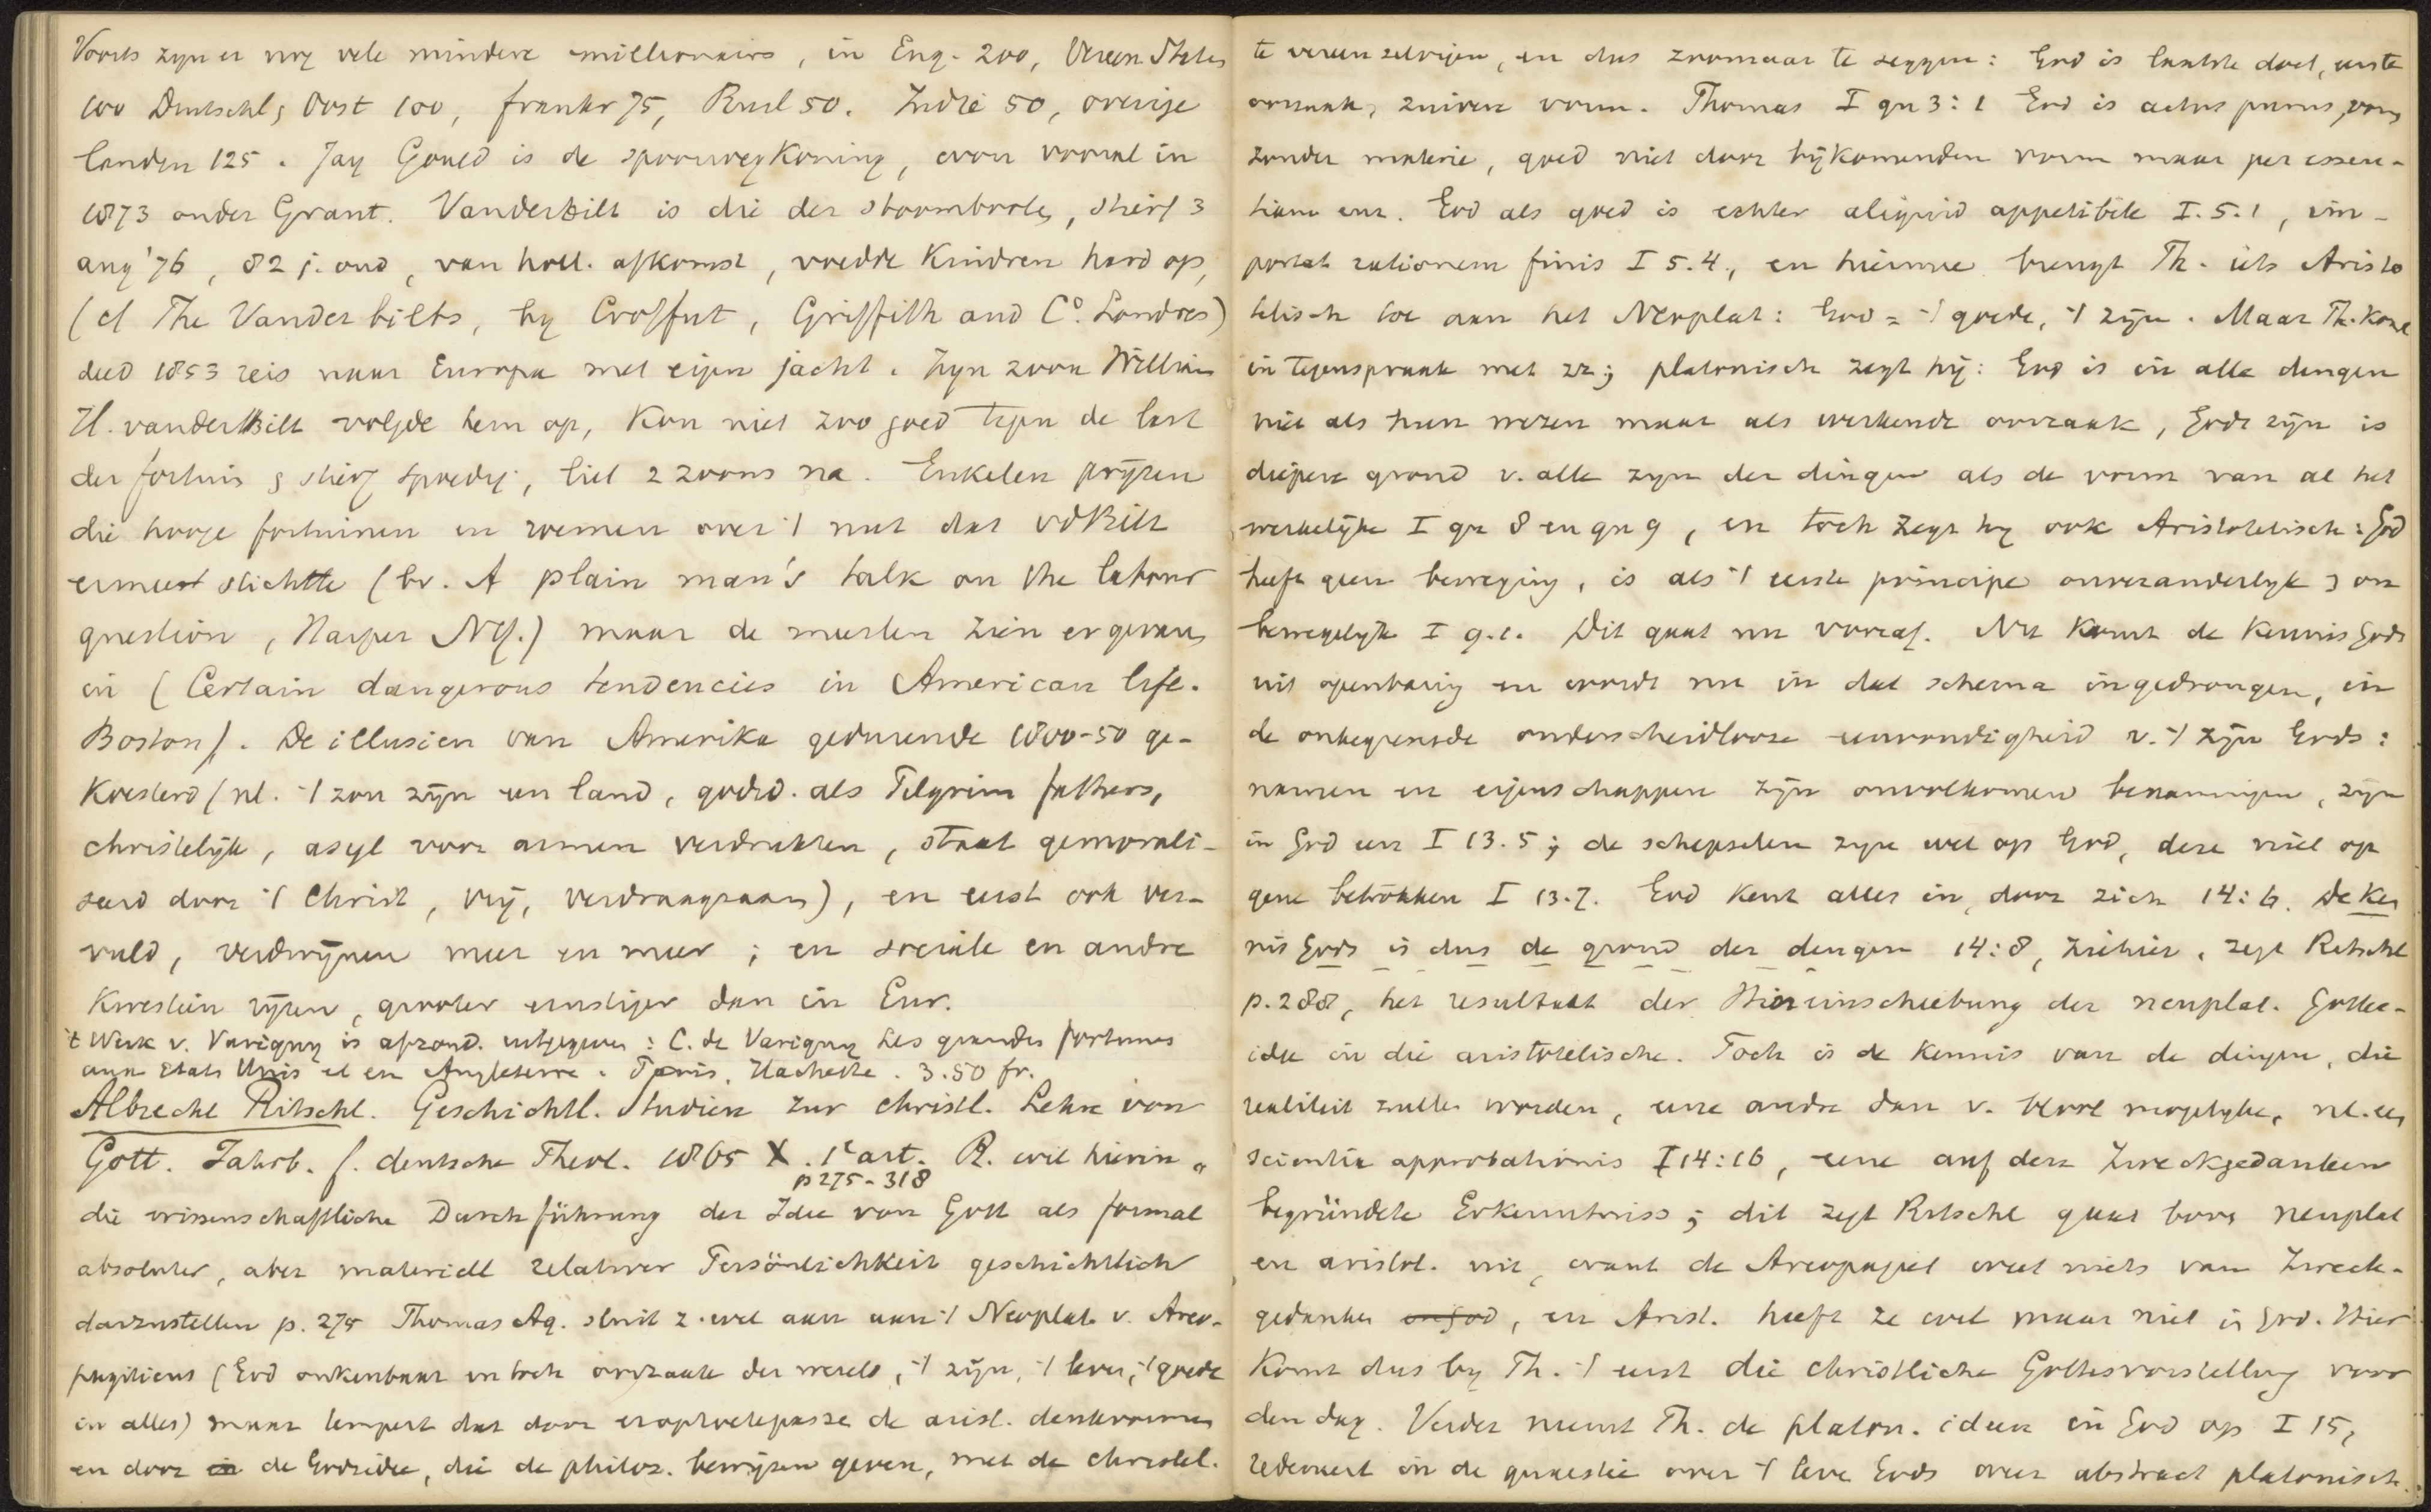 Voorts zyn er nog vele mindere millionairs, in Eng. 200, Vereen Staten
100 Duitschl, Oost 100, frankr 75, Rusl 50. Indië 50, overige
landen 125. Jay Gould is de spoorwegkoning, vooral in
1873 onder Grant. VanderBilt is die der stoombooten, stierf 3
Aug '76, 82 j. oud, van holl. afkomst, voedde Kindren hard op,
(cf The Vanderbilts, by Croffut, Griffith and Co. Londres)
deed 1853 reis naar Europa met eigen jacht. Zyn zoon William
H. vanderBilt volgde hem op, Kon niet zoo goed tegen de last
der fortuin & stierf spoedig, liet 2 zoons na. Enkelen pryzen
die hooge fortuinen en roemen over 't nut dat vdBilt
ermeê stichtte (bv. A plain man's talk on the labour
question, Harper NY.) maar de meesten zien er gevaar
in (Certain dangerous tendencies in American life.
Boston). De illusien van Amerika gedurende 1800-50 ge-
Koesterd (nl. 't zou zyn een land, godsd. als Pilgrim fathers,
christelyk, asyl voor armen verdrukten, staat gemorali-
seerd door 't Christ, vrij, verdraagzaam), en eerst ook ver-
vuld, verdwynen meer en meer; en sociale en andre
Kwestien ryzen, grooter ernstiger dan in Eur.
't Werk v. Varigny is afzond. uitgegeven: C. de Varigny Les grandes fortunes
aux Etats Unis et en Angleterre. Paris. Hachette. 3.50 fr.
Albrecht Ritschl. Geschichtl. Studien zur christl. Lehre von
Gott. Jahrb. f. deutsche Theol. 1865 X. 1e art. R. wil hierin „
p 275-318
die wissenschaftliche Durchführung der Idee von Gott als formal
absoluter, aber materiell relativer Persönlichkeit geschichtlich
darzustellen p. 275 Thomas Aq. sluit z. wel aan aan 't Neoplat. v. Areo-
pagiticus (God onkenbaar en toch oorzaak der wereld, 't zijn, 't leven, 't goede
in alles) maar tempert dat door erop toetepassen de arist. denkvormen
en door de Godsidee, die de philos. bewyzen geven, met de christel.
te vereenzelvigen, en dus zoomaar te zeggen: God is laatste doel, eerste
oorzaak, zuivere vorm. Thomas I qu 3:1 God is actus purus, vorm
zonder materie, goed niet door bijkomenden vorm maar per essen-
tiam enz. God als goed is echter aliquid appetibile I. 5.1, im-
portat rationem finis I 5.4., en hiermee brengt Th. iets Aristo
telisch toe aan het Neoplat: God = 't goede, 't zijn. Maar Th. Komt
in tegenspraak met zz; platonisch zegt hij: God is in alle dingen
niet als hun wezen maar als werkende oorzaak, Gods zijn is
diepere grond v. alle zyn der dingen als de vorm van al het
werkelijke I qu 8 en qu 9, en toch zegt hy ook Aristotelisch: God
heeft geen beweging, is als 't eerste principe onveranderlyk & on
bewegelyk I 9.1. Dit gaat nu vooraf. Nu Komt de Kennis Gods
uit openbaring en wordt nu in dat schema ingedrongen, in
de onbegrensde onderscheidlooze eenvoudigheid v. 't zijn Gods:
namen en eigenschappen zijn onvolkomen benamingen, zijn
in God een I 13.5; de schepselen zyn wel op God, deze niet op
gene betrokken I 13.7. God Kent alles in, door zich 14:6. De Ken
nis Gods is dus de grond der dingen 14:8, ziehier, zegt Ritschl
p. 288, het resultaat der Hineinschiebung der neuplat. Gottes-
idee in die aristotelische. Toch is de Kennis van de dingen, die
realiteit zullen worden, eene andre dan v. bloot mogelyke, nl. een
scientia approbationis I 14:16, eene auf den Zweckgedanken
begründete Erkenntniss; dit zegt Ritschl gaat boven neuplat
en aristot. uit, want de Areopagiet weet niets van Zweck-
gedanken, en Arist. heeft ze wel maar niet in God. Hier
Komt dus by Th. 't eerst die christliche Gottesvorstellung voor
den dag. Verder neemt Th. de platon. ideen in God op I 15,
redeneert in de quaestie over 't leve Gods over abstract platonisch.